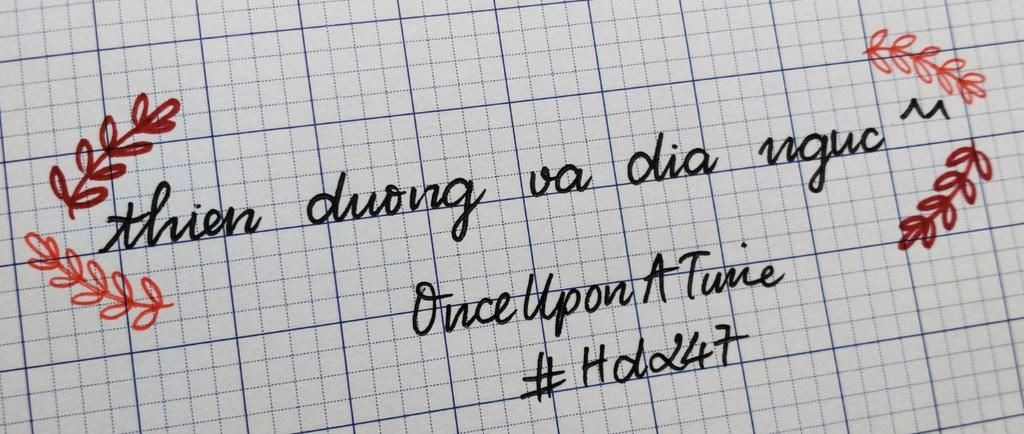 thien duong va dia nguc ~
OnceUponATime
#Hd247